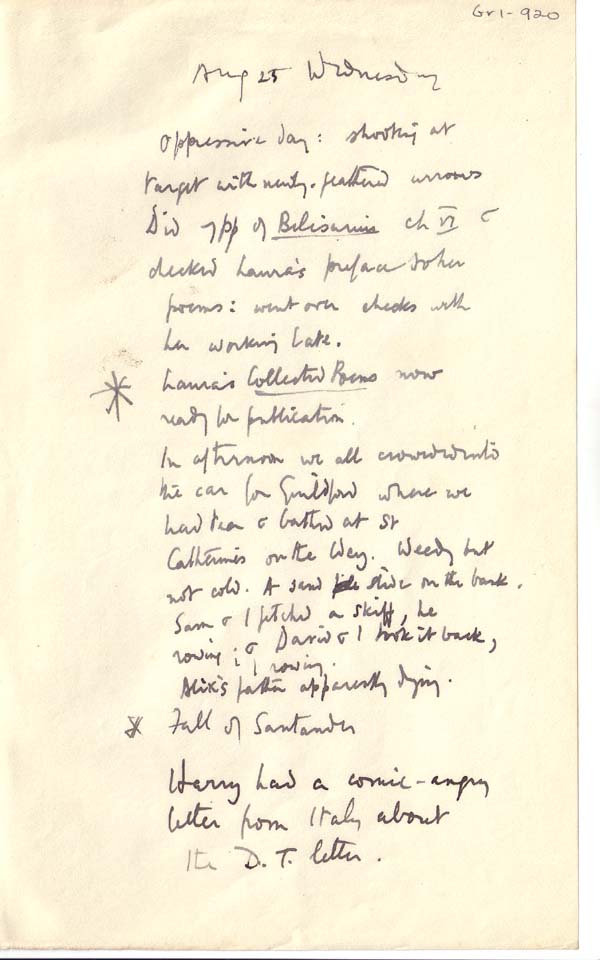 Gr1-920
Aug 25 Wednesday
Oppressive day: shooting at
target with newly-feathered arrows
Did 7pp of Belisarius ch VI &
checked Laura's preface to her
poems: went over checks with
her working late.
Laura's Collected Poems now
ready for publication.
In afternoon we all crowded into
the car for Guildford where we
had tea & bathed at St
Catherine's on the Wey. Weedy but
not cold. A sand slide on the bank.
Sam & I fetched a skiff, he
rowing; & David & I took it back,
I rowing.
Alix's father apparently dying.
Fall of Santander
Harry had a comic-angry
letter from Italy about
the D.T. letter.